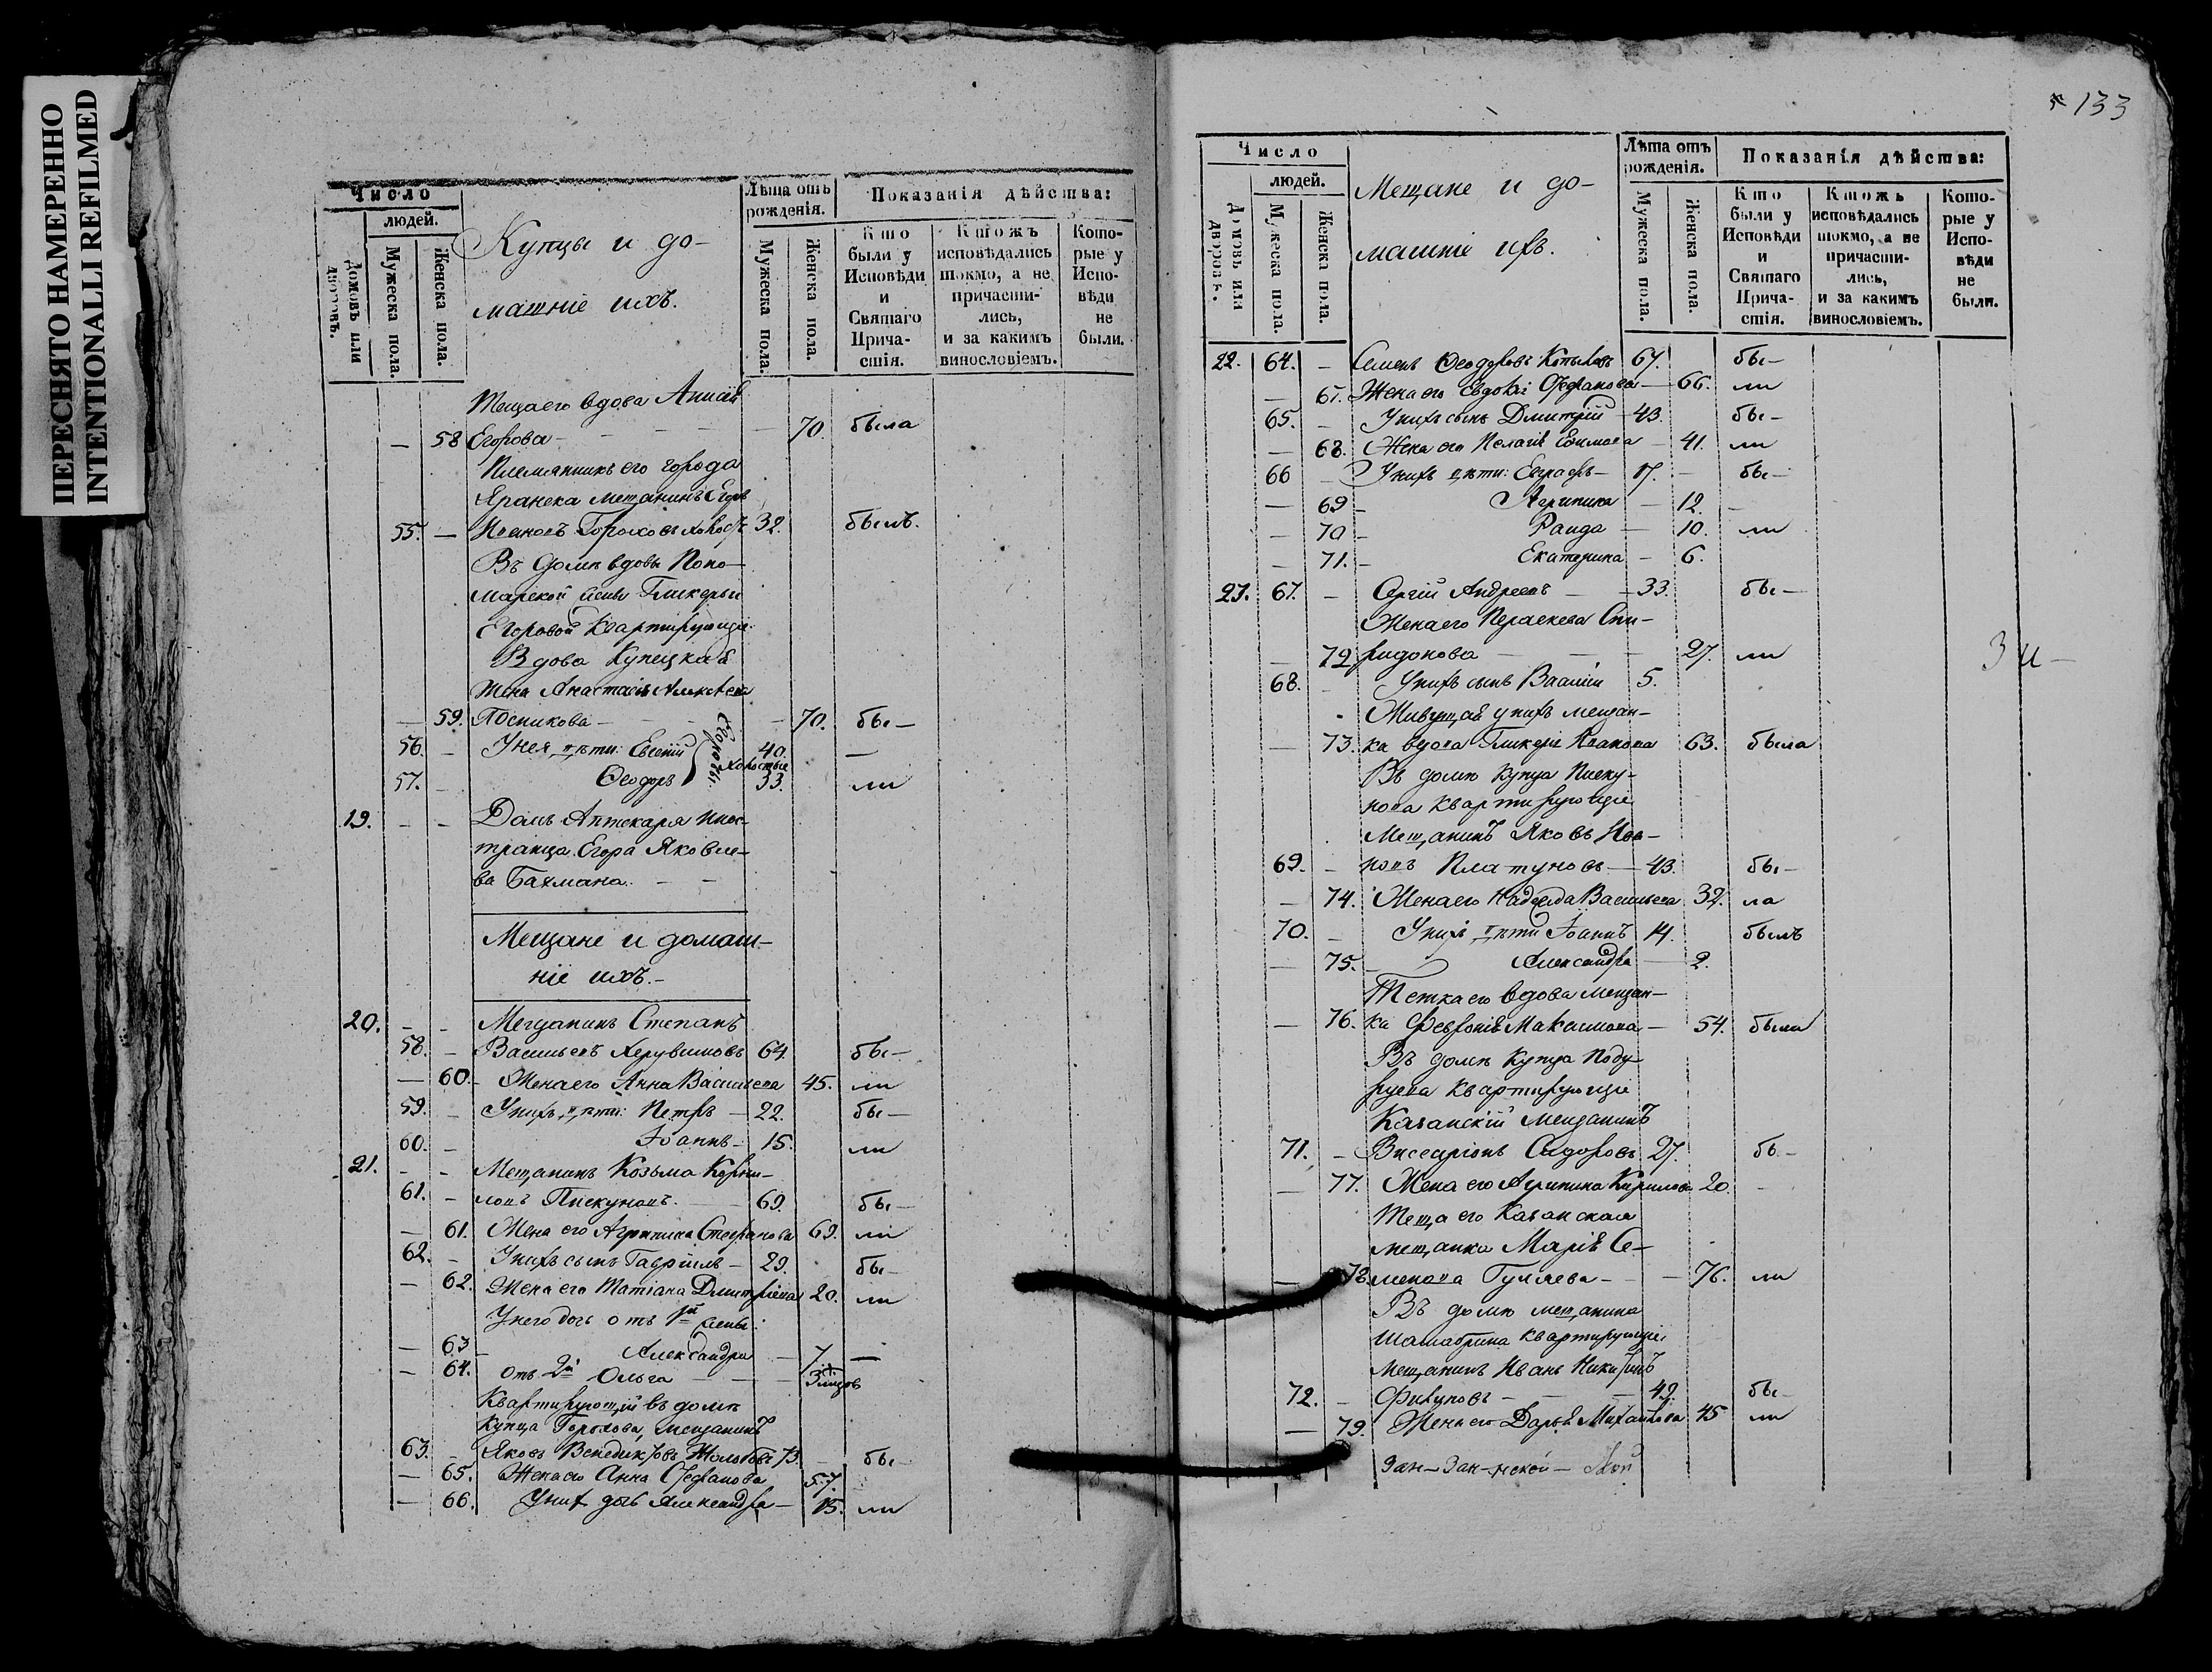 ПЕРЕСНЯТО НАМЕРЕННО
INTENTIONALLI REFILMED
Число
людей.
Домовъ или дворовъ.
Мужеска пола.
Женска пола.
Купцы и до-
машніе ихъ.
Лѣта отъ рожденія.
Мужеска пола.
Женска пола.
Показанія дѣйства:
Кто были у Исповѣди и Святаго Причастія.
Ктожъ исповѣдались токмо, а не причастились, и за какимъ винословіемъ.
Которые у Исповѣди не были.
Теща его вдова
— 58 Егорова — 70. была
Племянникъ его города
Яранска мещанинъ Егоръ
55. — Ивановъ Гороховъ холостъ 32. былъ.
Въ домѣ вдовы Поно-
марской жены Гликерьи
Егоровой квартирующи
Вдова Купецкая
жена Анастасія Алексѣева
— 59. Посникова — 70. бы —
56. — У нея дѣти: Евгеній 40. —
Егоровы холостые
57. — Ѳеодоръ 33. ли
19. — — Домъ Аптекаря инос-
транца Егора Яковле-
ва Бахмана. — —
Мещане и домаш-
ніе ихъ. —
20. — — Мещанинъ Степанъ
58. — Васильевъ Херувимовъ 64. бы —
— 60. — Жена его Анна Васильева 45. ли
59. — У нихъ дѣти: Петръ — 22. бы —
60. — Іоаннъ — 15. ли
21. — — Мещанинъ Козьма Корни-
61. — ловъ Пискуновъ. — 69. бы —
— 61. Жена его Агрипина Стефанова 69. ли
62. — У нихъ сынъ Гавріилъ — 29. бы —
— 62. Жена его Татіана Дмитріева 20. ли
У него дочь отъ 1й жены:
— 63 — Александра — 7 —
— 64. отъ 2й Ольга — 3 мцовъ
Квартирующій въ домѣ
купца Горохова, мещанинъ
63. — Яковъ Венедиктовъ 73. — бы —
— 65. Жена его Анна Стефанова 57.
— 66. У них дочь Александра — 15. ли
133
Число
людей.
Домовъ или дворовъ.
Мужеска пола.
Женска пола.
Мещане и до-
машніе ихъ.
Лѣта отъ рожденія.
Мужеска пола.
Женска пола.
Показанія дѣйства:
Кто были у Исповѣди и Святаго Причастія.
Ктожъ исповѣдались токмо, а не причастились, и за какимъ винословіемъ.
Которые у Исповѣди не были.
22. 64. — Семенъ Ѳеодоровъ Копыловъ 67. бы —
— 67. Жена его Стефанова — 66. ли
65. — У нихъ сынъ Дмитрій 43. бы —
— 68. Жена его Пелагія Ефимова — 41. ли
66 — У нихъ дѣти: Евграфъ — 17. — бы —
— 69 — Агрипина — 12. —
— 70 — Раида — 10. ли
— 71. — Екатерина — 6.
23. 67. — Сергій Андреевъ — 33. бы —
Жена его Параскева Спи-
— 72 ридонова — 27. ли
68. — У нихъ сынъ Василій 5.
3 и —
Живущая у нихъ мещан-
— 73. ка вдова Гликерія Иванова 63. была
Въ домѣ купца Писку-
нова квартирующіе
Мещанинъ Яковъ Ива-
69. — новъ Платуновъ — 43. бы —
— 74. Жена его Надежда Васильева 32. ла
70. — У них дѣти Іоаннъ 14. былъ
— 75. — Александра — 2.
Тетка его вдова мещан-
— 76. ка Февронія Максимова — 54. была
Въ домѣ купца Поду-
руева квартирующіе
Казанскій мещанинъ
71. — Виссаріонъ Сидоровъ 27. бы —
— 77. Жена его Агрипина Кирилова 20. —
Теща его Казанская
мещанка Марія Се-
— 78 менова Гуляева — 76. ли
Въ домѣ мещанина
Шамабрина квартирующіе
мещанинъ Иванъ Никитинъ
72. — Фикуновъ — 49. бы —
— 79. Жена его Дарья Михайлова 45 ли